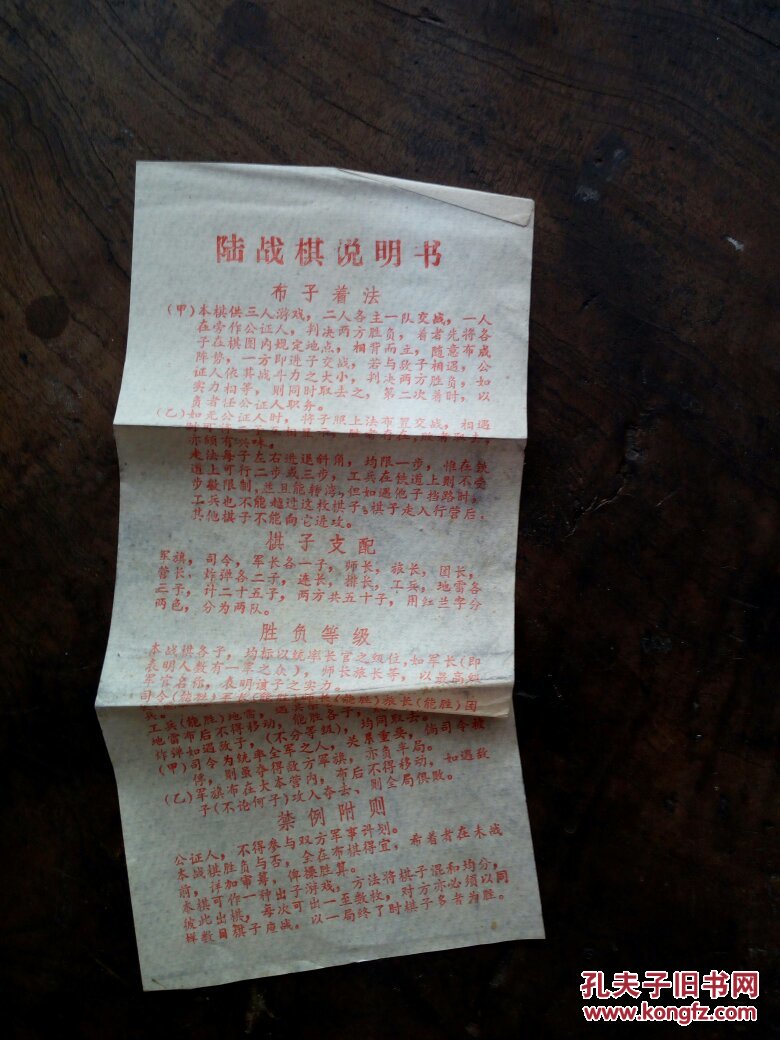 陆战棋说明书
布子着法
(甲)本棋供三人游戏，二人各主一队交战，一人
在旁作公证人，判决两方胜负，着者先将各
子在棋图内规定地点，相背而主，随意布成
阵势，一方即进子交战，若与敌子相遇，公
证人依其战斗力之大小，判决两方胜负，如
实力相等，则同时取去之，第二次着时，以
负者任公证人职务。
(乙)如无公证人时，将子照上法布置交战，相遇
亦颇有兴味。
走法每子左右进退斜角，均限一步，惟在铁
道上可行二步或三步，工兵在铁道上则不受
步数限制，并且能转湾，但如遇他子挡路时，
工兵也不能越过这枚棋子；棋子走入行营后，
其他棋子不能向它进攻。
棋子支配
军旗，司令，军长各一子，师长，旅长，团长，
营长，炸弹各二子，连长，排长，工兵，地雷各
三子，计二十五子，两方共五十子，用红兰字分
两色，分为两队。
胜负等级
本战棋各子，均标以统率长官之级位，如军长(即
表明人数有一军之众)，师长旅长等，以最高级
军官名称，表明该子之实力。
司令(能胜)军长(能胜)师长(能胜)旅长(能胜)团
兵。
工兵(能胜)地雷，
地雷布后不得移动，能胜各子，
炸弹如遇敌子，(不分等级)，均同取去。
(甲)司令为统率全军之人，关系重要，倘司令被
俘，则虽夺得敌方军旗，亦负半局。
(乙)军旗布在大本营内，布后不得移动，如遇敌
子(不论何子)攻入夺去、则全局俱败。
禁例附则
公证人，不得参与双方军事计划。
本战棋胜负与否，全在布棋得宜，希着者在未战
前，详加审筹，俾操胜算。
本棋可作一种出子游戏，方法将棋子混和均分，
彼此出棋，每次可出一至数枚，对方亦必须以同
样数目棋子应战。以一局终了时棋子多者为胜。
孔夫子旧书网
www.kongfz.com